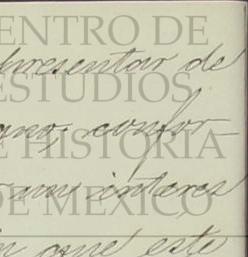 ENTRO DE
presentar de
ESTUDIOS
ano, confor-
E HISTORIA
un interes
DE MEXICO
que este